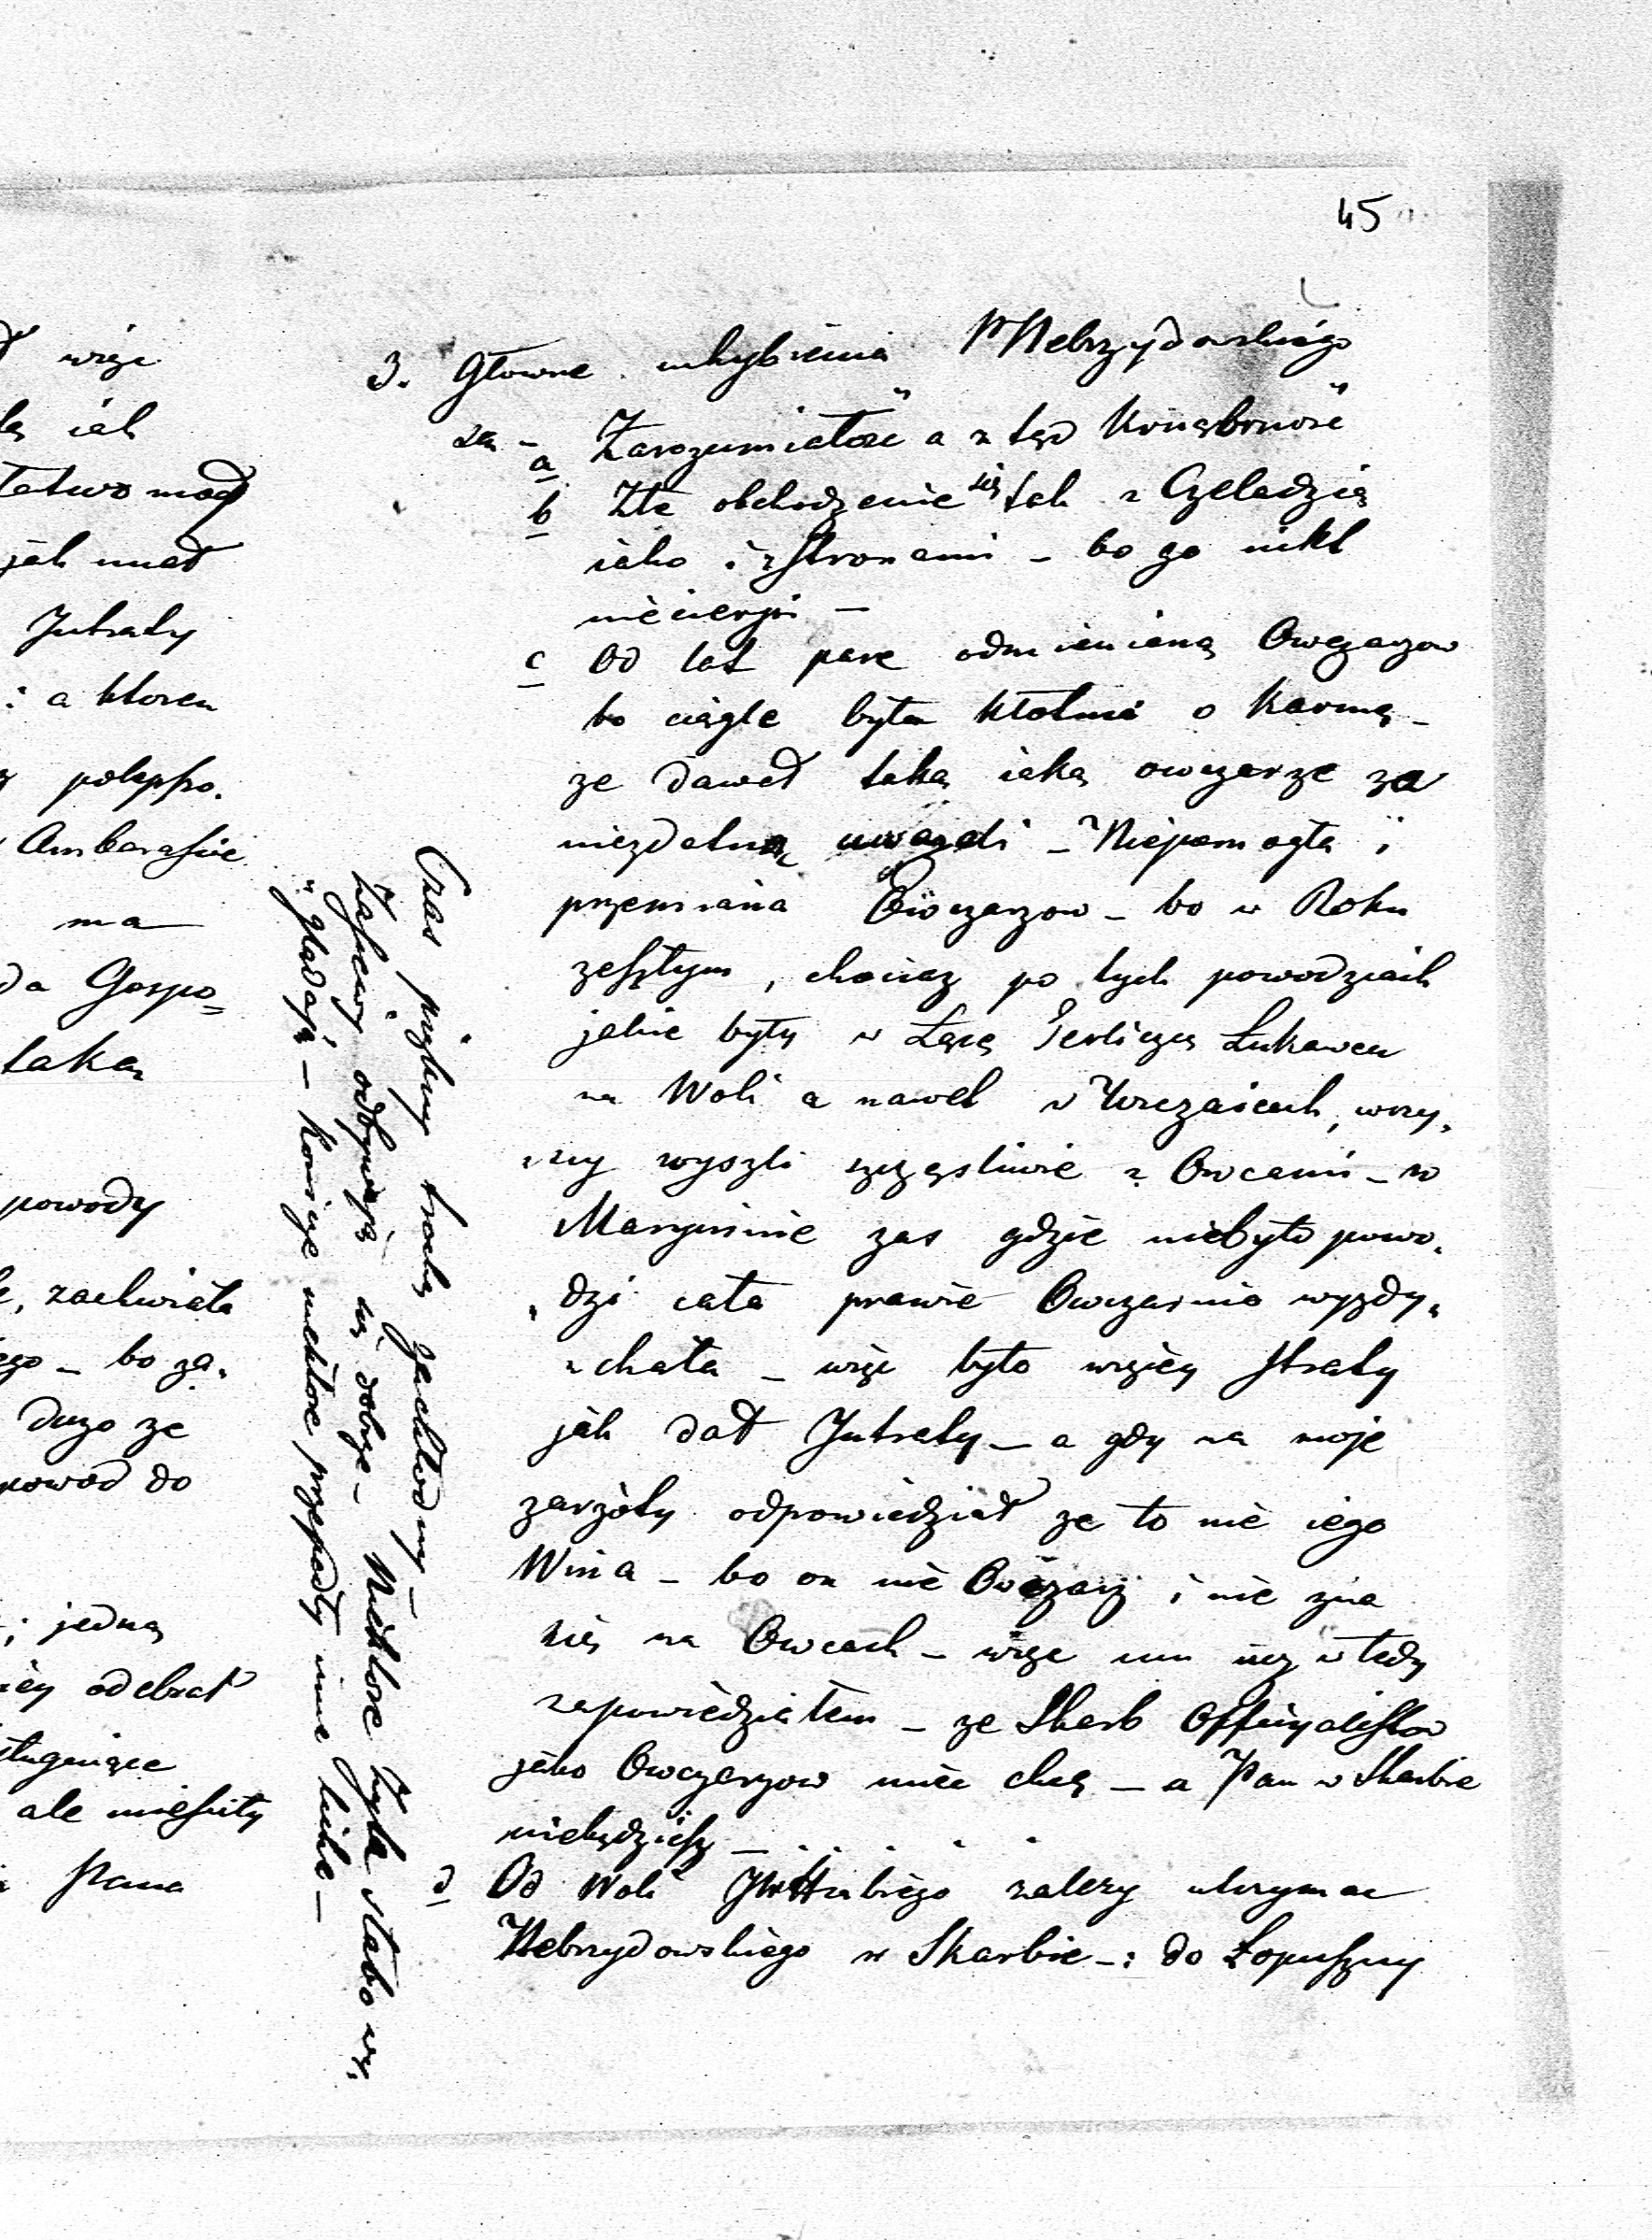 45
3. Głowne uchybienia Nebrzydowskiego
są - a Zarozumiałość a z tąd Krnąbrność
b Złe obchodzenie się tak z Czeladzią
iako i z Stronami - bo go nikt
niecierpi -
c Od lat parę odmieniana Owczarzow
bo ciągle była kłotnia o Karmą -
ze dawał taką iaką owczarze za
niezdatną uwazali - Niepomogła i
przemiana Owczarzow - bo w Roku
zeszłym, chociaz po tych powodziach
jakie były w Łące Terliczce Łukawcu
na Woli a nawet w Krzczaicach, wszy„
„scy wyszli szczęsliwie z Owcami - w
Maryninie zas gdzie niebyło powo„
„dzi cała prawie Owczarnia wyzdy„
„chała - więc było więcey Straty
jak dał Jntraty - a gdy na moje
zarzóty odpowiedział ze to nie iego
Wina - bo on nie Owczarz i nie zna
się na Owcach - więc mu iuz w tedy
zapowiedziałem - ze Skarb Officyalistow
jako Owczarzow miec chcą - a Pan w Skarbie
niebędziesz -
d Od Woli JW Hrabiego zalezy utrzymac
Nebrzydowskiego w Skarbie -: do Łopuszny
Czas piękny trochę zachłodny -
Zasiewy odbywają się dobrze - Niektore Zyta słabo wy„
„glądają - Konicze niektore przepadły inne liche -
więc
iak
łatwo mogł
jak miał
Jntraty
: a ktoren
polepszo.
Ambarasie
ma
da Gospo=
taka
powody
, zachwiała
ego - bo za„
duzo ze
powod do
; jedną
iey odebrał
sługuiące
ale miesiity
Pana